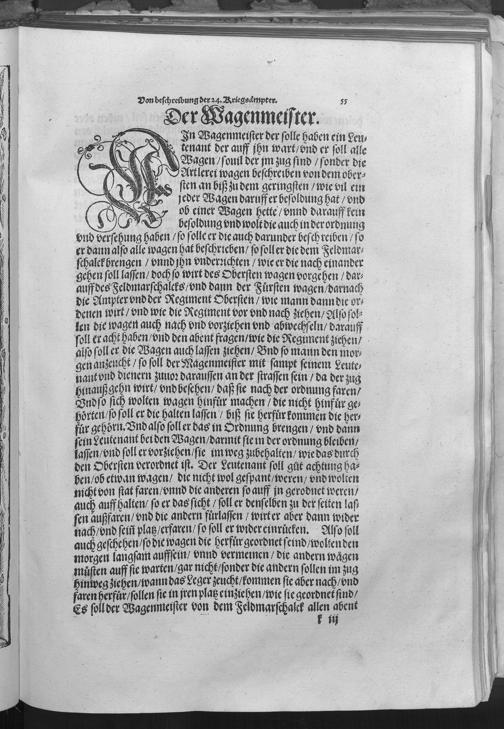 Von beschreibung der 24. Kriegsämpter. 55
Der Wagenmeister.
EIn Wagenmeister der solle haben ein Leu-
tenant der auff jhn wart/ vnd er soll alle
Wagen/ souil der jm zug sind/ sonder die
Artlerei wagen beschreiben von dem ober-
sten an biß zu dem geringsten/ wie vil ein
jeder Wagen darauff er besoldung hat/ vnd
ob einer Wagen hette/ vnnd darauff kein
besoldung vnd wolt die auch in der ordnung
vnd versehung haben/ so solle er die auch darunder beschreiben/ so
er dann also alle wagen hat beschrieben/ so soll er die dem Feldmar-
schalck brengen/ vnnd jhn vnderrichten/ wie er die nach einander
gehen soll lassen/ doch so wirt des Obersten wagen vorgehen/ dar-
auff des Feldmarschalcks/ vnd dann der Fürsten wagen/ darnach
die Ampter vnd der Regiment Obersten/ wie mann dann die or-
denen wirt/ vnd wie die Regiment vor vnd nach ziehen/ Also sol-
len die wagen auch nach vnd vorziehen vnd abwechseln/ darauff
soll er acht haben/ vnd den abent fragen/ wie die Regiment ziehen/
also soll er die Wagen auch lassen ziehen/ Vnd so mann den mor-
gen anzeucht/ so soll der Wagenmeister mit sampt seinem Leute-
nant vnd dienern zuuor daraussen an der strassen sein/ da der zug
hinauß gehn wirt/ vnd besehen/ daß sie nach der ordnung faren/
Vnd so sich wolten wagen hinfür machen/ die nicht hinfür ge-
hörten/ so soll er die halten lassen/ biß sie herfür kommen die her-
für gehörn. Vnd also soll er das in Ordnung brengen/ vnd dann
sein Leutenant bei den Wagen/ darmit sie in der ordnung bleiben/
lassen/ vnd soll er vorziehen/ sie im weg zubehalten/ wie das durch
den Obersten verordnet ist. Der Leutenant soll güt achtung ha-
ben/ ob etwan wagen/ die nicht wol gespant/ weren/ vnd wolten
nicht von stat faren/ vnnd die anderen so auff jn gerodnet weren/
auch auff halten/ so er das sicht/ soll er denselben zu der seiten las-
sen außfaren/ vnd die andern fürlassen/ wirt er aber dann wider
nach/ vnd sein platz erfaren/ so soll er wider einrücken. Also soll
auch geschehen/ so die wagen die herfür geordnet seind/ wolten den
morgen langsam auffsein/ vnnd vermeinen/ die andern wägen
müsten auff sie warten/ gar nicht/ sonder die andern sollen im zug
hinweg ziehen/ wann das Leger zeucht/ kommen sie aber nach/ vnd
faren herfür/ sollen sie in jren platz einziehen/ wie sie geordnet sind/
Es soll der Wagenmeister von dem Feldmarschalck allen abent
k iij